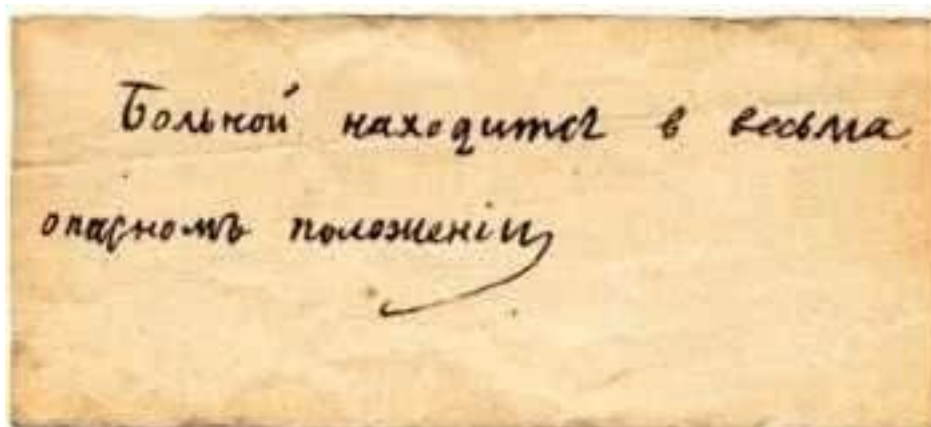 Больной находится в весьма
опасномъ положеніи